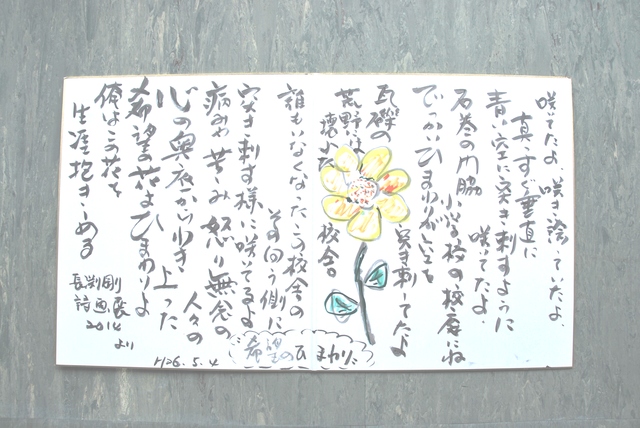 咲てたよ、咲き誇っていたよ、
真っすぐ垂直に
青い空に突き刺すように
咲てたよ
石巻の門脇
小学校の校庭にね
でっかいひまわりが空を
突き刺してたよ
瓦礫の
荒野には
壊れた
校舎。
誰もいなくなったこの校舎の
その向う側に
突き刺す様に咲いてるよ
病みや苦しみ 怒り無念の
人々の
心の奥底から湧き上った
希望の花はひまわりよ
俺はこの花を
生涯抱きしめる
長渕剛
詩画展
2014
より
H26.5.4
希望のひまわり